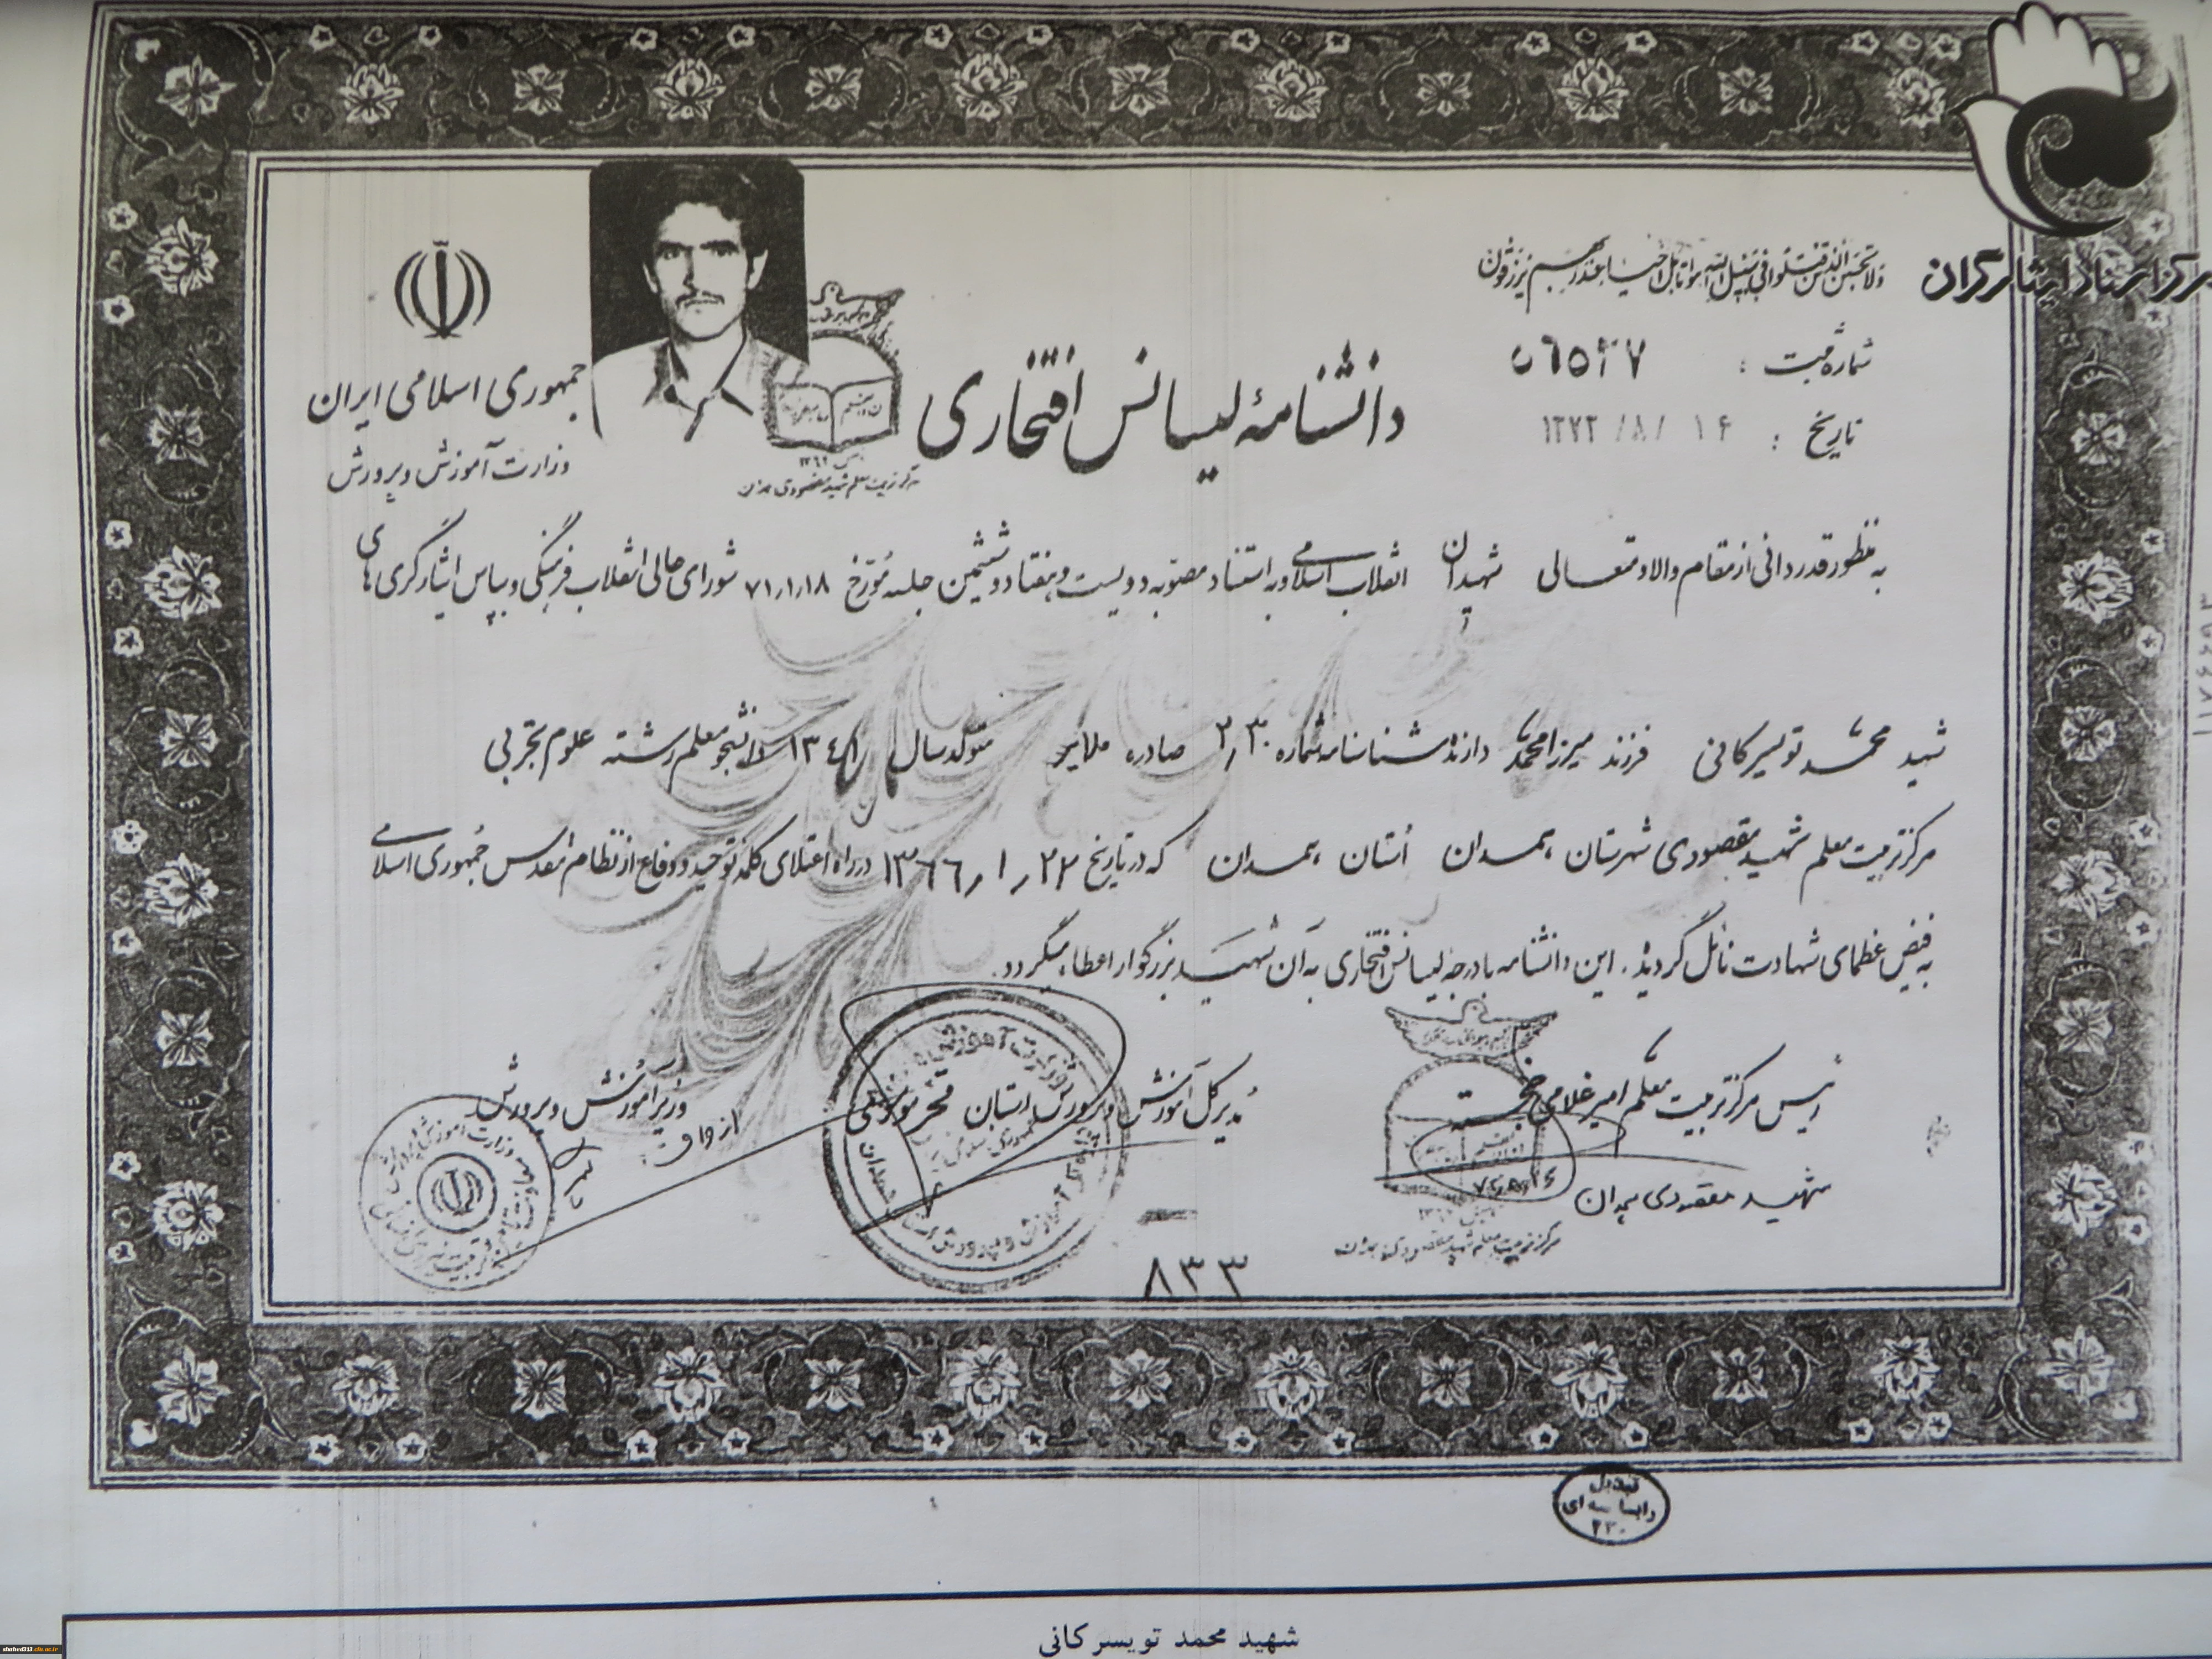 مرکز اسناد ایثارگران
ولا تحسبن الذین قتلوا فی سبیل الله امواتا بل احیاء عند ربهم یرزقون
شماره ثبت :
تاریخ : ۱۳۷۲/۸/۱۶
جمهوری اسلامی ایران
وزارت آموزش و پرورش
دانشنامهٔ لیسانس افتخاری
مرکز تربیت معلم شهید مقصودی همدان
به منظور قدردانی از مقام والا و متعالی شهیدان انقلاب اسلامی و به استناد مصوبه دویست و هفتاد و ششمین جلسه مورخ ۷۱٫۱٫۱۸ شورای عالی انقلاب فرهنگی و بپاس ایثارگری های
شهید محمد تویسرکانی فرزند میرزا محمد دارنده شناسنامه شماره صادره ملایر متولد سال ۱۳۴۱ دانشجو معلم رشته علوم تجربی
مرکز تربیت معلم شهید مقصودی شهرستان همدان استان همدان که در تاریخ ۱۳۶۶٫۱٫۲۲ در راه اعتلای کلمه توحید و دفاع از نظام مقدس جمهوری اسلامی
به فیض عظمای شهادت نائل گردید. این دانشنامه با درجه لیسانس افتخاری به آن شهید بزرگوار اعطاء میگردد.
رئیس مرکز تربیت معلم امیر غلامی خجسته
شهید مقصودی همدان
مدیر کل آموزش و پرورش استان
وزیر آموزش و پرورش
از طرف
۸۳۳
مرکز تربیت معلم شهید مقصودی همدان
تبدیل
رایانه ای
۲۳۰
شهید محمد تویسرکانی
shahed313.cfu.ac.ir